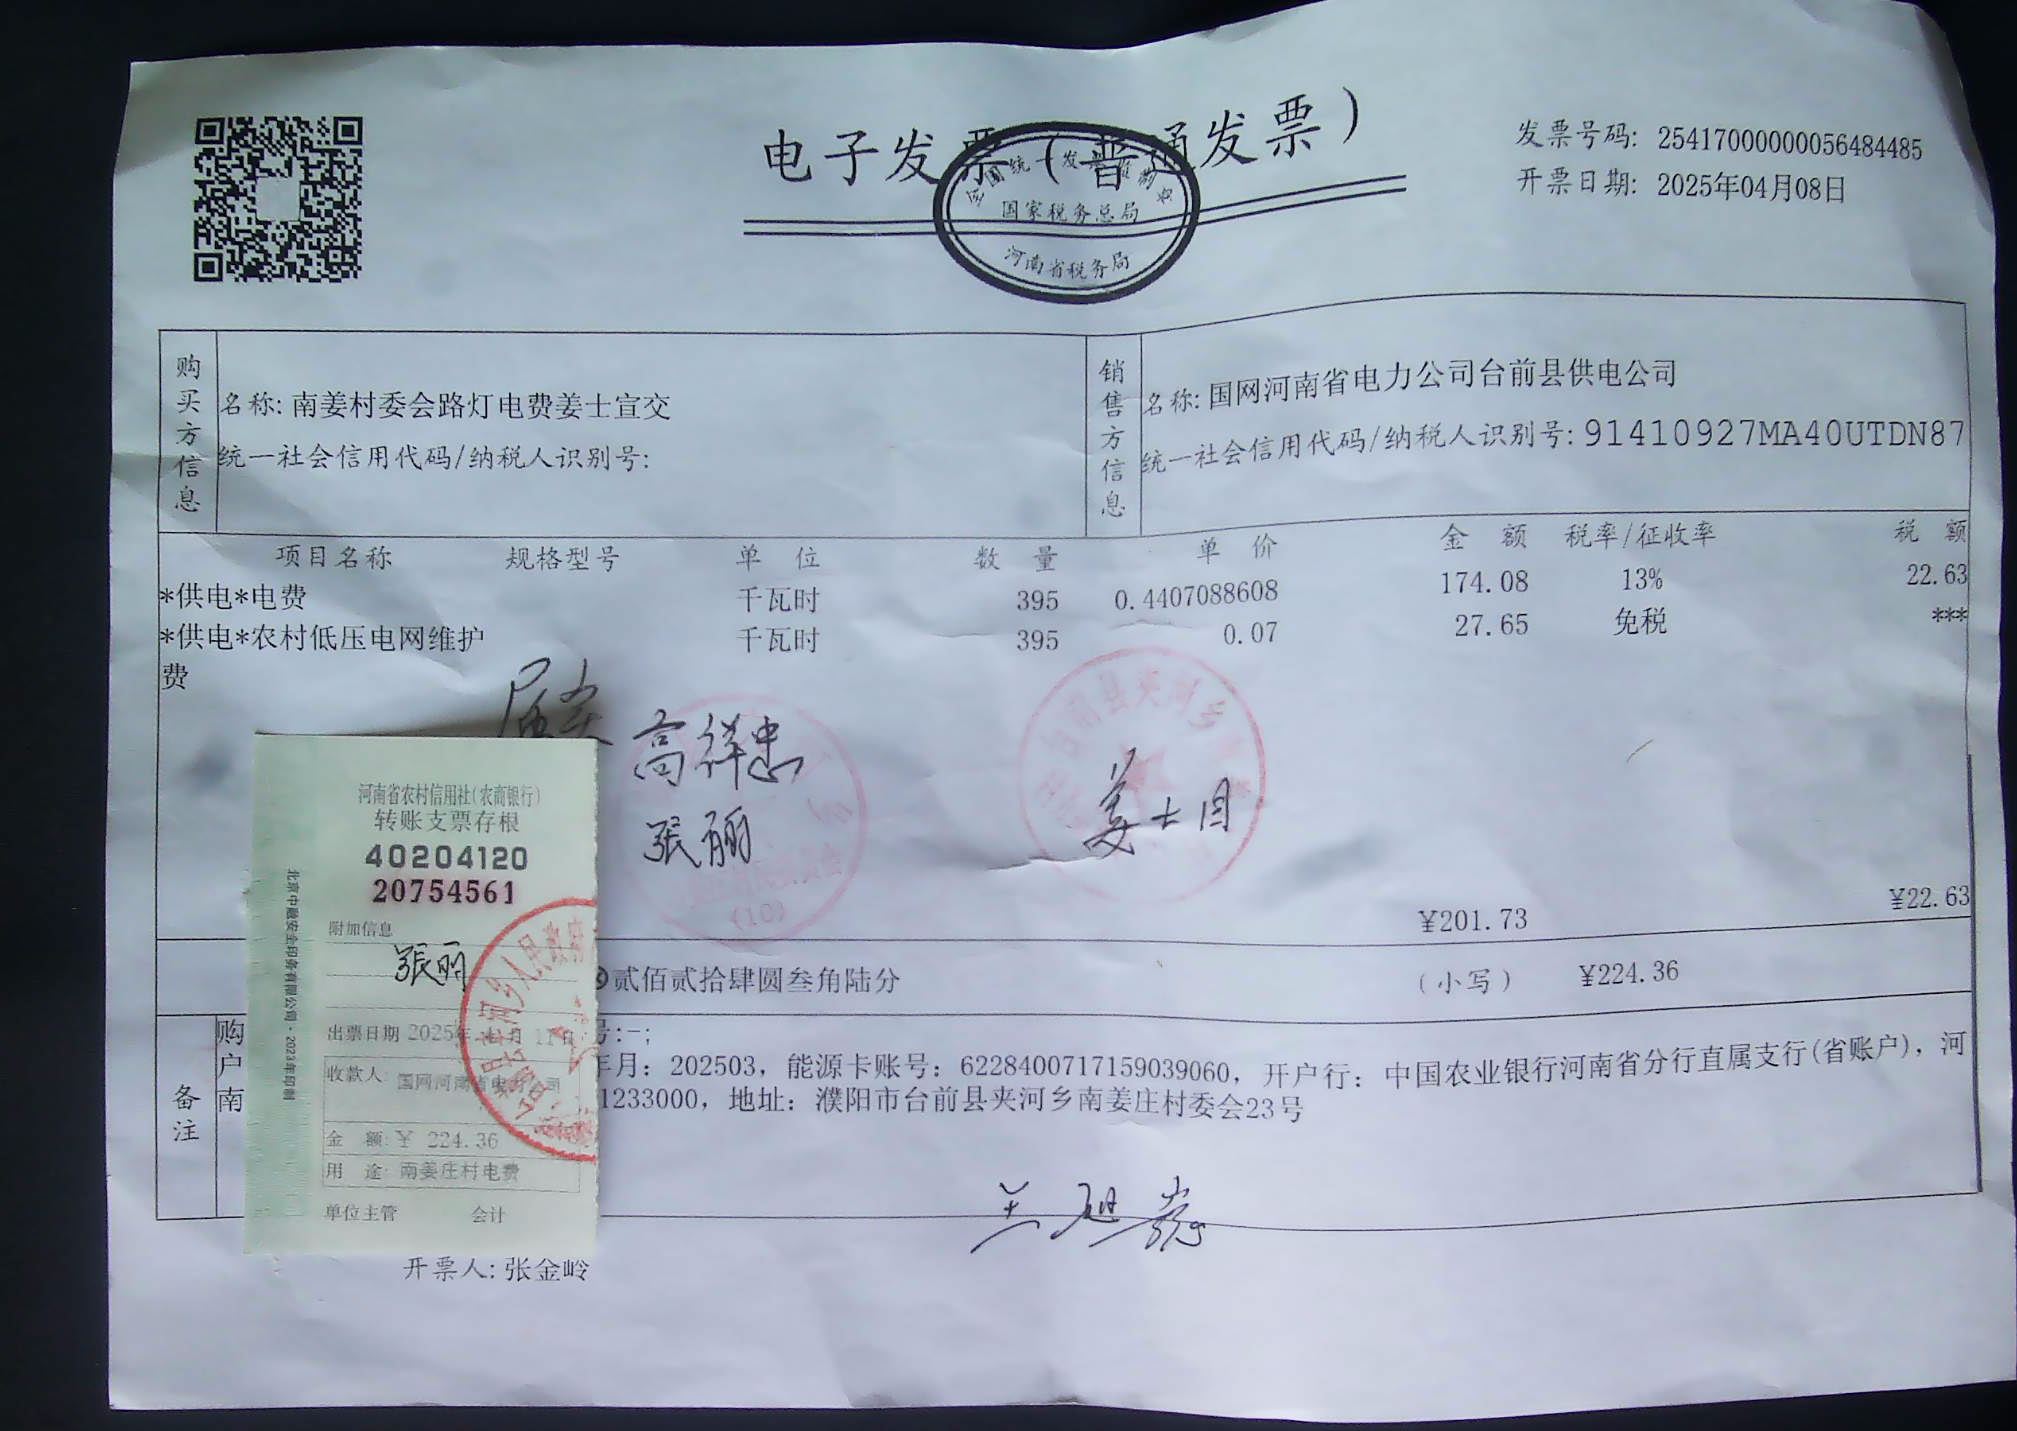 电子发票（普通发票）
全国统一发票监制章
国家税务总局
河南省税务局
发票号码: 25417000000056484485
开票日期: 2025年04月08日
购买方信息
名称: 南姜村委会路灯电费姜士宣交
统一社会信用代码/纳税人识别号:
销售方信息
名称: 国网河南省电力公司台前县供电公司
统一社会信用代码/纳税人识别号: 91410927MA40UTDN87
项目名称 规格型号 单 位 数 量 单 价 金 额 税率/征收率 税 额
*供电*电费 千瓦时 395 0.4407088608 174.08 13% 22.63
*供电*农村低压电网维护 千瓦时 395 0.07 27.65 免税 ***
费
高祥忠
張丽
姜士目
(10)
¥201.73 ¥22.63
贰佰贰拾肆圆叁角陆分 （小写） ¥224.36
备注
购 号:-;
户 年月: 202503, 能源卡账号: 6228400717159039060, 开户行: 中国农业银行河南省分行直属支行(省账户), 河
南 1233000, 地址: 濮阳市台前县夹河乡南姜庄村委会23号
开票人: 张金岭
河南省农村信用社(农商银行)
转账支票存根
40204120
20754561
附加信息
張丽
出票日期 2025年 月 11日
收款人: 国网河南省电力公司
金 额: ¥ 224.36
用 途: 南姜庄村电费
单位主管 会计
北京中融安全印务有限公司·2023年印制